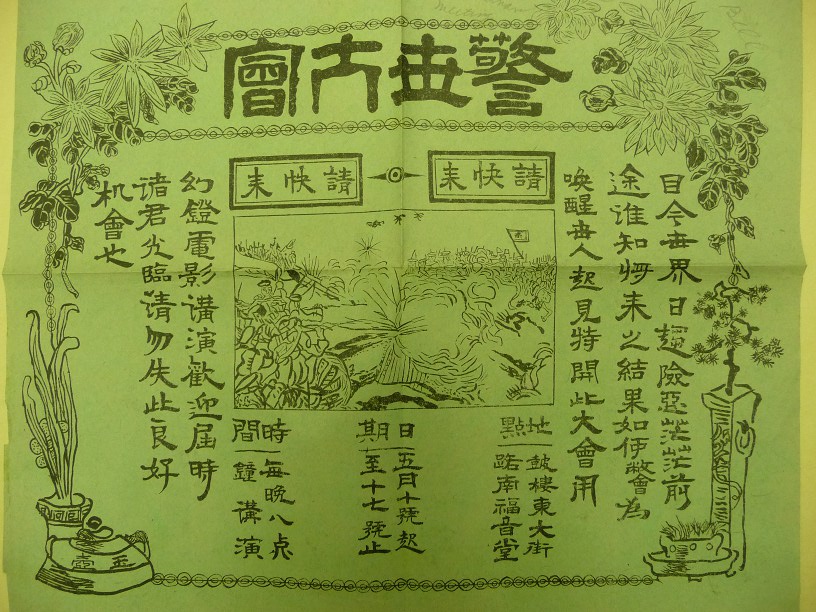 警世大會
請快来
請快来
目今世界日趨險惡茫茫前
途誰知将来之結果如何敝會為
喚醒世人起見特開此大會用
地點
鼓樓東大街
路南福音堂
日期
五月十號起
至十七號止
時間
每晚八点
鐘講演
幻鐙電影講演歡迎屆時
諸君光臨请勿失此良好
机會也
玉壺